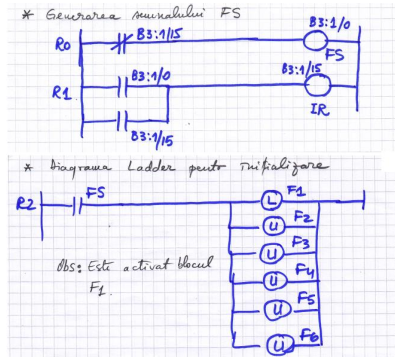 * Generarea semnalului FS
R0 B3:1/15 B3:1/0
FS
R1 B3:1/0 B3:1/15
IR
B3:1/15
* Diagrama Ladder pentr inițializare
R2 FS L F1
U F2
U F3
Obs: Este activat blocul
F1.
U F4
U F5
U F6